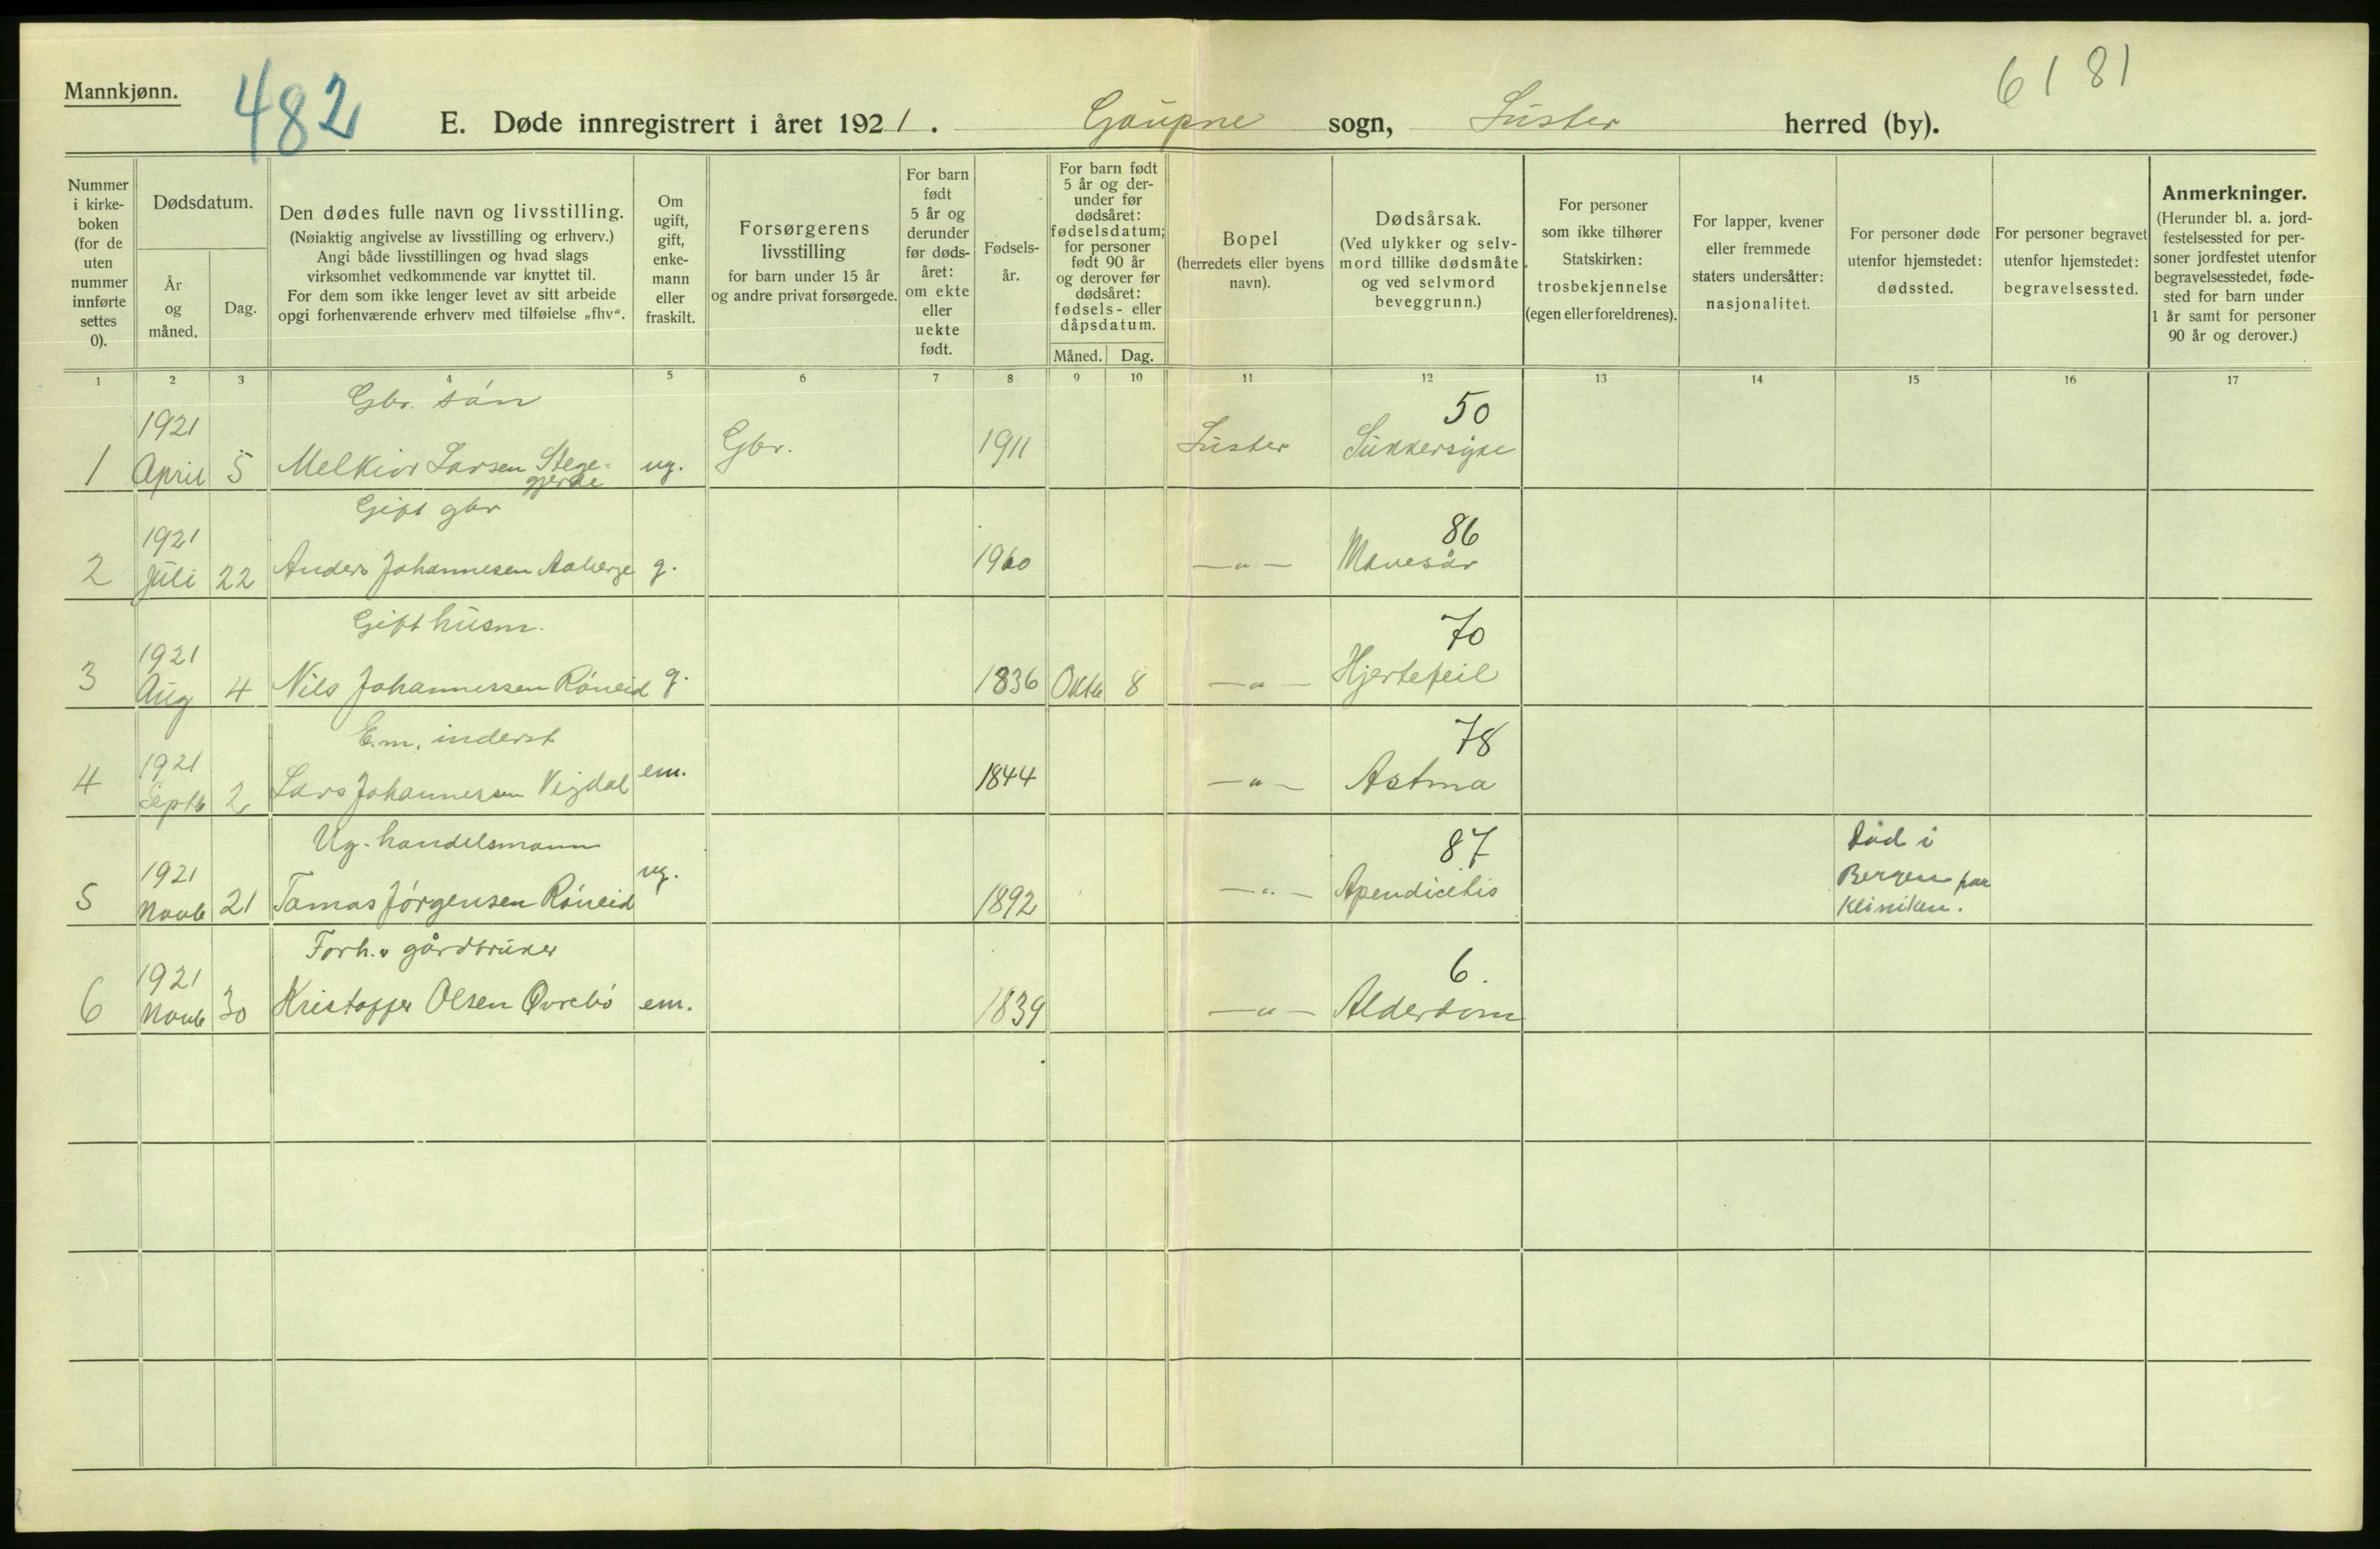 Mannkjønn.
482
6181
E. Døde innregistrert i året 1921. Gaupne sogn, Luster herred (by).
Nummer i kirkeboken (for de uten nummer innførte settes 0).
Dødsdatum.
År og måned.
Dag.
Den dødes fulle navn og livsstilling.
(Nøiaktig angivelse av livsstilling og erhverv.)
Angi både livsstillingen og hvad slags
virksomhet vedkommende var knyttet til.
For dem som ikke lenger levet av sitt arbeide
opgi forhenværende erhverv med tilføielse „fhv“.
Om ugift, gift, enkemann eller fraskilt.
Forsørgerens
livsstilling
for barn under 15 år
og andre privat forsørgede.
For barn født 5 år og derunder før dødsåret: om ekte eller uekte født.
Fødselsår.
For barn født 5 år og derunder før dødsåret: fødselsdatum; for personer født 90 år og derover før dødsåret: fødsels- eller dåpsdatum.
Måned. Dag.
Bopel
(herredets eller byens
navn).
Dødsårsak.
(Ved ulykker og selvmord tillike dødsmåte og ved selvmord beveggrunn.)
For personer
som ikke tilhører
Statskirken:
trosbekjennelse
(egen eller foreldrenes).
For lapper, kvener
eller fremmede
staters undersåtter:
nasjonalitet.
For personer døde
utenfor hjemstedet:
dødssted.
For personer begravet
utenfor hjemstedet:
begravelsessted.
Anmerkninger.
(Herunder bl. a. jordfestelsessted for personer jordfestet utenfor begravelsesstedet, fødested for barn under 1 år samt for personer 90 år og derover.)
1 2 3 4 5 6 7 8 9 10 11 12 13 14 15 16 17
Gbr. són
50
1 1921 April 5 Melkior Larsen Stegegjerde ug. Gbr. 1911 Luster Sukkersyke
Gift gbr
86
2 1921 Juli 22 Anders Johannesen Aaberge g. 1960 —„— Mavesår
Gift husm.
70
3 1921 Aug 4 Nils Johannessen Róneid g. 1836 Oktb 8 —„— Hjertefeil
E.m. inderst
78
4 1921 Septb 2 Lars Johannessen Vigdal em. 1844 —„— Astma
Ug. handelsmann
87
5 1921 Novb 21 Tomas Jórgensen Róneid ug. 1892 —„— Apendicetis Dód i Bergen paa Kliniken.
Forh.v gårdbruker
6.
6 1921 Novb 30 Kristoffer Olsen Øvrebó em. 1839 —„— Alderdom